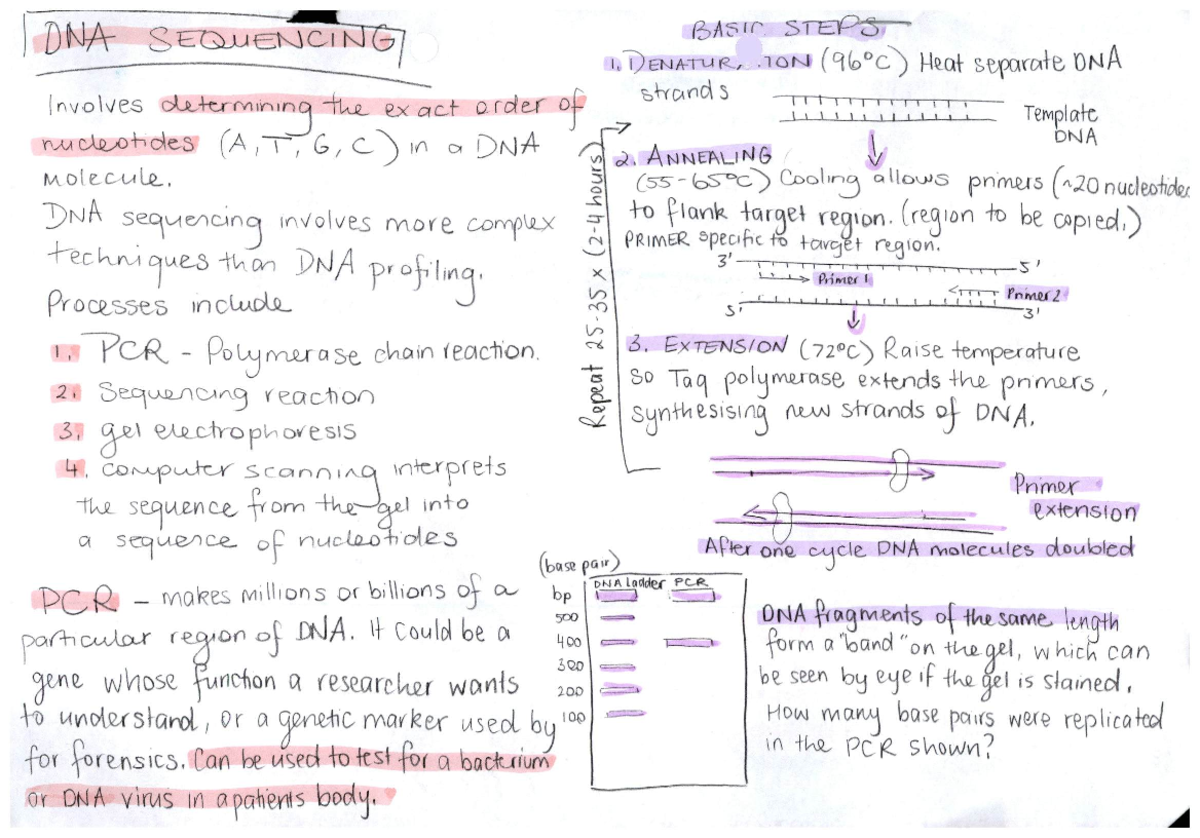 DNA SEQUENCING
Involves determining the exact order of
nucleotides (A, T, G, C) in a DNA
molecule.
DNA sequencing involves more complex
techniques than DNA profiling.
Processes include
1. PCR - Polymerase chain reaction.
2. Sequencing reaction
3. gel electrophoresis
4. computer scanning interprets
the sequence from the gel into
a sequence of nucleotides
PCR - makes millions or billions of a
particular region of DNA. It could be a
gene whose function a researcher wants
to understand, or a genetic marker used by
for forensics. Can be used to test for a bacterium
or DNA virus in a patients body.
BASIC STEPS
1. (96°C) Heat separate DNA
strands
Template
DNA
2. ANNEALING
(55-65°C) Cooling allows primers (~20 nucleotides
to flank target region. (region to be copied.)
PRIMER specific to target region.
3' 5'
Primer 1
Primer 2
5' 3'
3. EXTENSION (72°C) Raise temperature
so Taq polymerase extends the primers,
synthesising new strands of DNA.
Repeat 25-35 x (2-4 hours)
Primer
extension
After one cycle DNA molecules doubled
(base pair)
bp DNA ladder PCR
500
400
300
200
100
DNA fragments of the same length
form a "band" on the gel, which can
be seen by eye if the gel is stained.
How many base pairs were replicated
in the PCR shown?